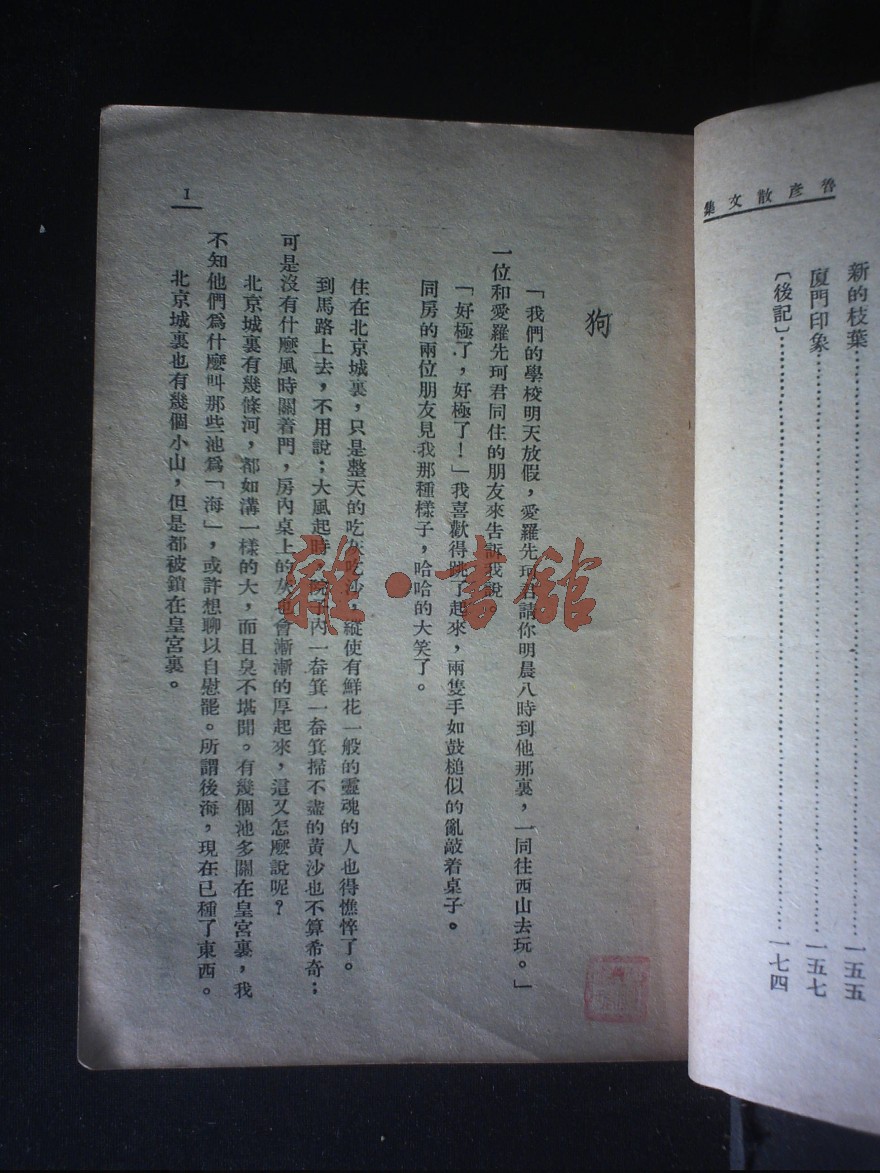 魯彥散文集
新的枝葉……一五五
廈門印象……一五七
〔後記〕……一七四
狗
「我們的學校明天放假，愛羅先珂君請你明晨八時到他那裏，一同往西山去玩。」
一位和愛羅先珂君同住的朋友來告訴我說。
「好極了，好極了！」我喜歡得跳了起來，兩隻手如鼓槌似的亂敲着桌子。
同房的兩位朋友見我那種樣子，哈哈的大笑了。
住在北京城裏，只是整天的吃灰吃沙，縱使有鮮花一般的靈魂的人也得憔悴了。
到馬路上去，不用說；大風起時，院子內一畚箕一畚箕掃不盡的黃沙也不算希奇；
可是沒有什麼風時關着門，房內桌上的灰也會漸漸的厚起來，這又怎麼說呢？
北京城裏有幾條河，都如溝一樣的大，而且臭不堪聞。有幾個池多關在皇宮裏，我
不知他們爲什麼叫那些池爲「海」，或許想聊以自慰罷。所謂後海，現在已種了東西。
北京城裏也有幾個小山，但是都被鎖在皇宮裏。
1
雜·書館